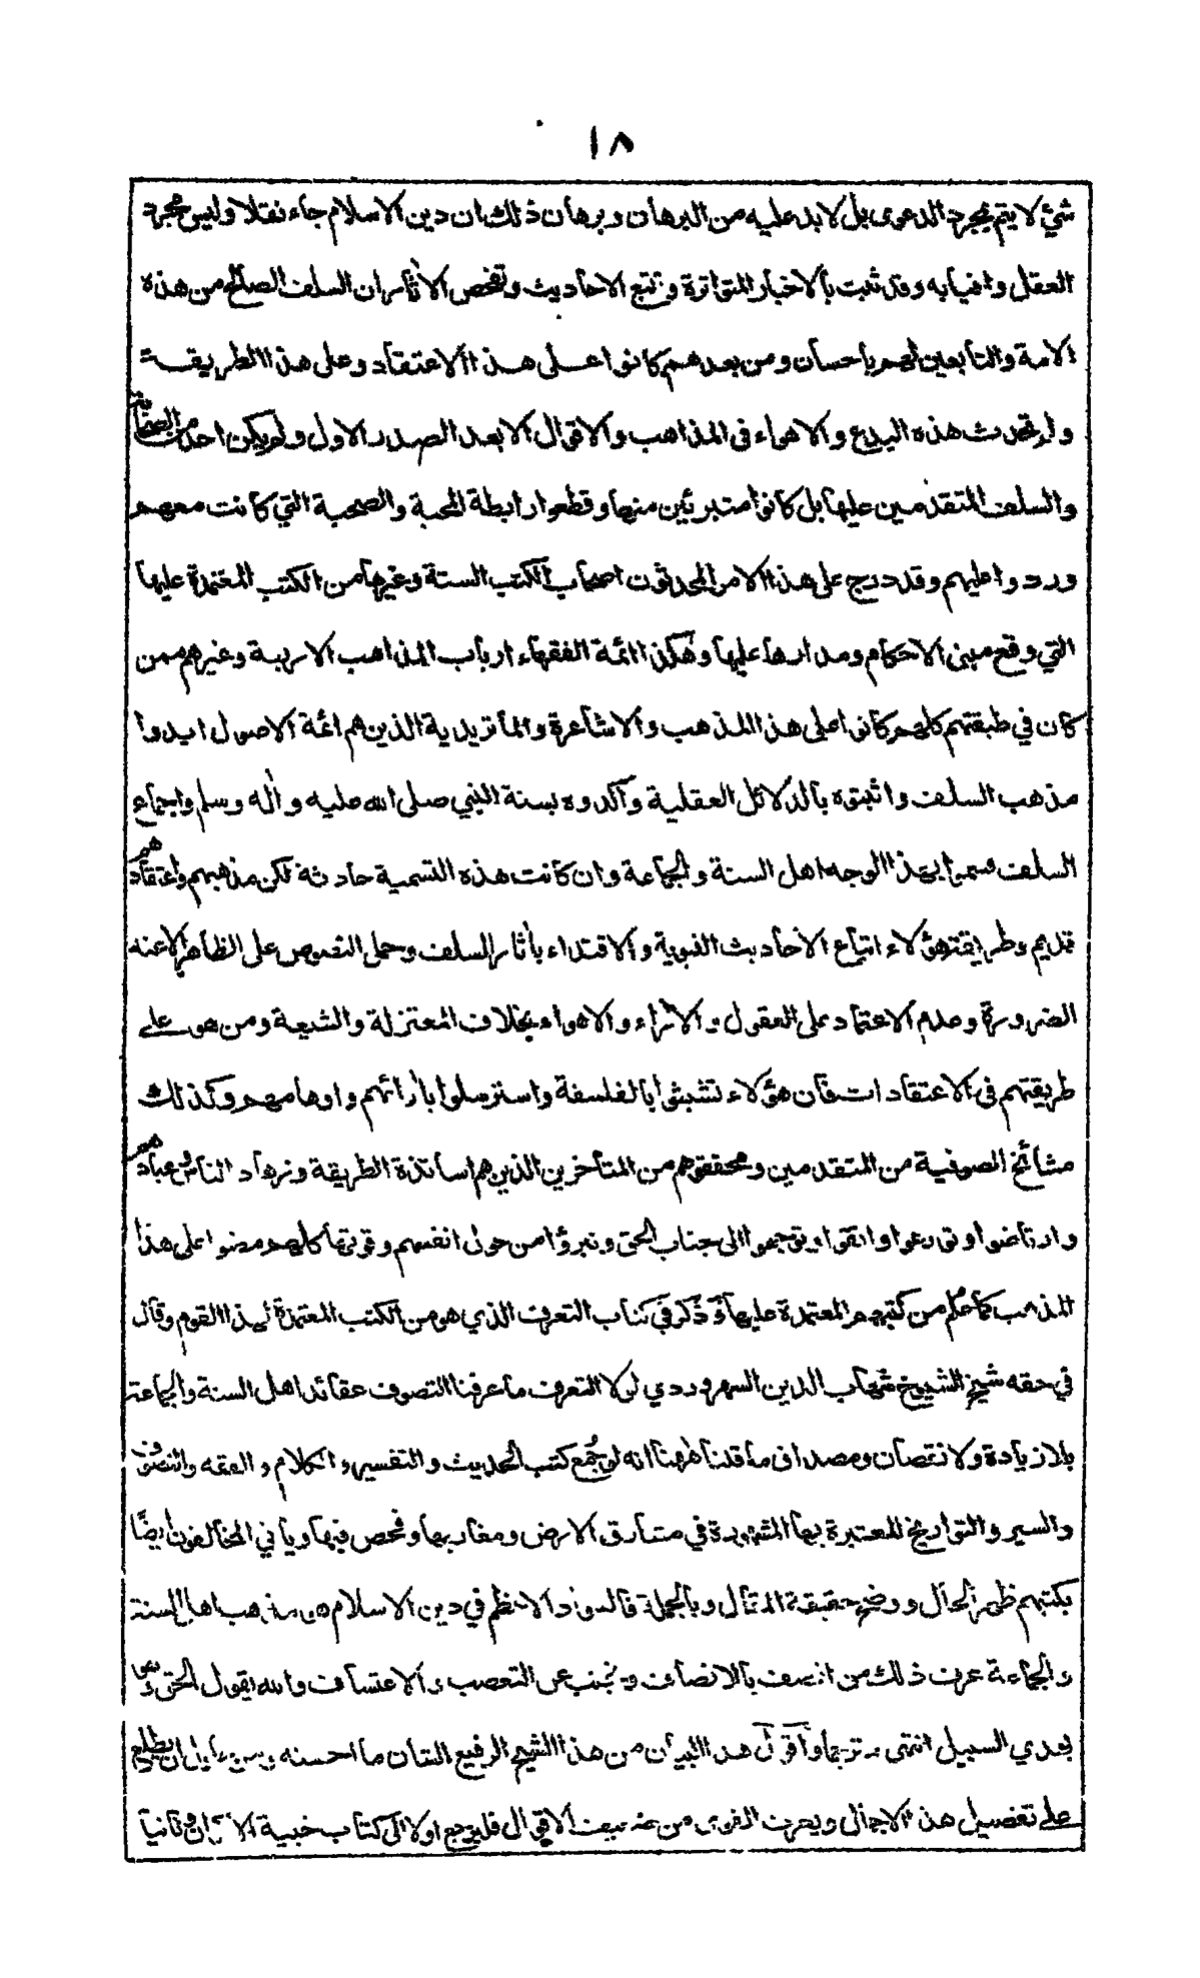 ١٨
شيء لا يتم بمجرد الدعوى بل لا بد عليه من البرهان وبرهان ذلك ان دين الاسلام جاء نقلا وليس مجرد
العقل وافيا به وقد ثبت بالاخبار المتواترة وتتبع الاحاديث وتفحص الآثار ان السلف الصالح من هذه
الامة والتابعين لهم باحسان ومن بعدهم كانوا على هذا الاعتقاد وعلى هذا الطريقة
ولم تحدث هذه البدع والاهواء في المذاهب والاقوال الا بعد الصدر الاول ولم يكن احد من الصحابة
والسلف المتقدمين عليها بل كانوا متبرئين منها وقطعوا رابطة المحبة والصحبة التي كانت معهم
وردوا عليهم وقد درج على هذا الامر المحدثون اصحاب الكتب الستة وغيرها من الكتب المعتمدة عليها
التي وقع مبنى الاحكام ومدارها عليها وهكذا ائمة الفقهاء ارباب المذاهب الاربعة وغيرهم ممن
كان في طبقتهم كلهم كانوا على هذا المذهب والاشاعرة والماتريدية الذين هم ائمة الاصول ايدوا
مذهب السلف واثبتوه بالدلائل العقلية وآكدوه بسنة النبي صلى الله عليه وآله وسلم واجماع
السلف سموا بهذا الوجه اهل السنة والجماعة وان كانت هذه التسمية حادثة لكن مذهبهم واعتقادهم
قديم وطريقة هؤلاء اتباع الاحاديث النبوية والاقتداء بآثار السلف وحمل النصوص على الظاهر الا عند
الضرورة وعدم الاعتماد على العقول والآراء والاهواء بخلاف المعتزلة والشيعة ومن هو على
طريقتهم في الاعتقادات فان هؤلاء تشبثوا بالفلسفة واسترسلوا بآرائهم واوهامهم وكذلك
مشائخ الصوفية من المتقدمين ومحققوهم من المتاخرين الذين هم اساتذة الطريقة وزهاد الناس وعبادهم
وارتاضوا وتورعوا واتقوا وتوجهوا الى جناب الحق وتبرؤا من حول انفسهم وقوتها كلهم مضوا على هذا
المذهب كما علم من كتبهم المعتمدة عليها وذكر في كتاب التعرف الذي هو من الكتب المعتمدة لهذا القوم وقال
في حقه شيخ الشيوخ شهاب الدين السهروردي لولا التعرف ما عرفنا التصوف عقائد اهل السنة والجماعة
بلا زيادة ولا نقصان ومصداق ما قلنا ههنا انه لو جمع كتب الحديث والتفسير والكلام والفقه والتصوف
والسير والتواريخ المعتبرة بها المشهورة في مشارق الارض ومغاربها وفحص فيها ويأتي المخالفون ايضًا
بكتبهم ظهر الحال ووضح حقيقة المقال وبالجملة فالسواد الاعظم في دين الاسلام هو مذهب اهل السنة
والجماعة عرف ذلك من اتصف بالانصاف وتجنب عن التعصب والاعتساف والله يقول الحق وهو
يهدي السبيل انتهى مترجما واقول هذا البيان من هذا الشيخ الرفيع الشان ما احسنه ان يطلع
على تفصيل هذا الاجمال ويعرف القوى من ضعيف الاقوال فليرجع اولا الى كتاب خبية الاكوان وثانيا